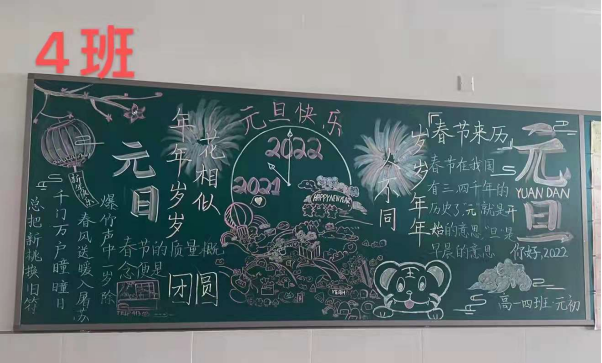 4班
元日
爆竹声中一岁除
春风送暖入屠苏
千门万户曈曈日
总把新桃换旧符
年年岁岁
花相似
春节的质量概
念便是
团圆
元旦快乐
2022
2021
HAPPY NEW YEAR
岁岁年年
人不同
春节来历
春节在我国
有三四千年的
历史了,"元"就是开
始的意思"旦"是
早晨的意思
元旦
YUAN DAN
你好,2022
高一四班 元初